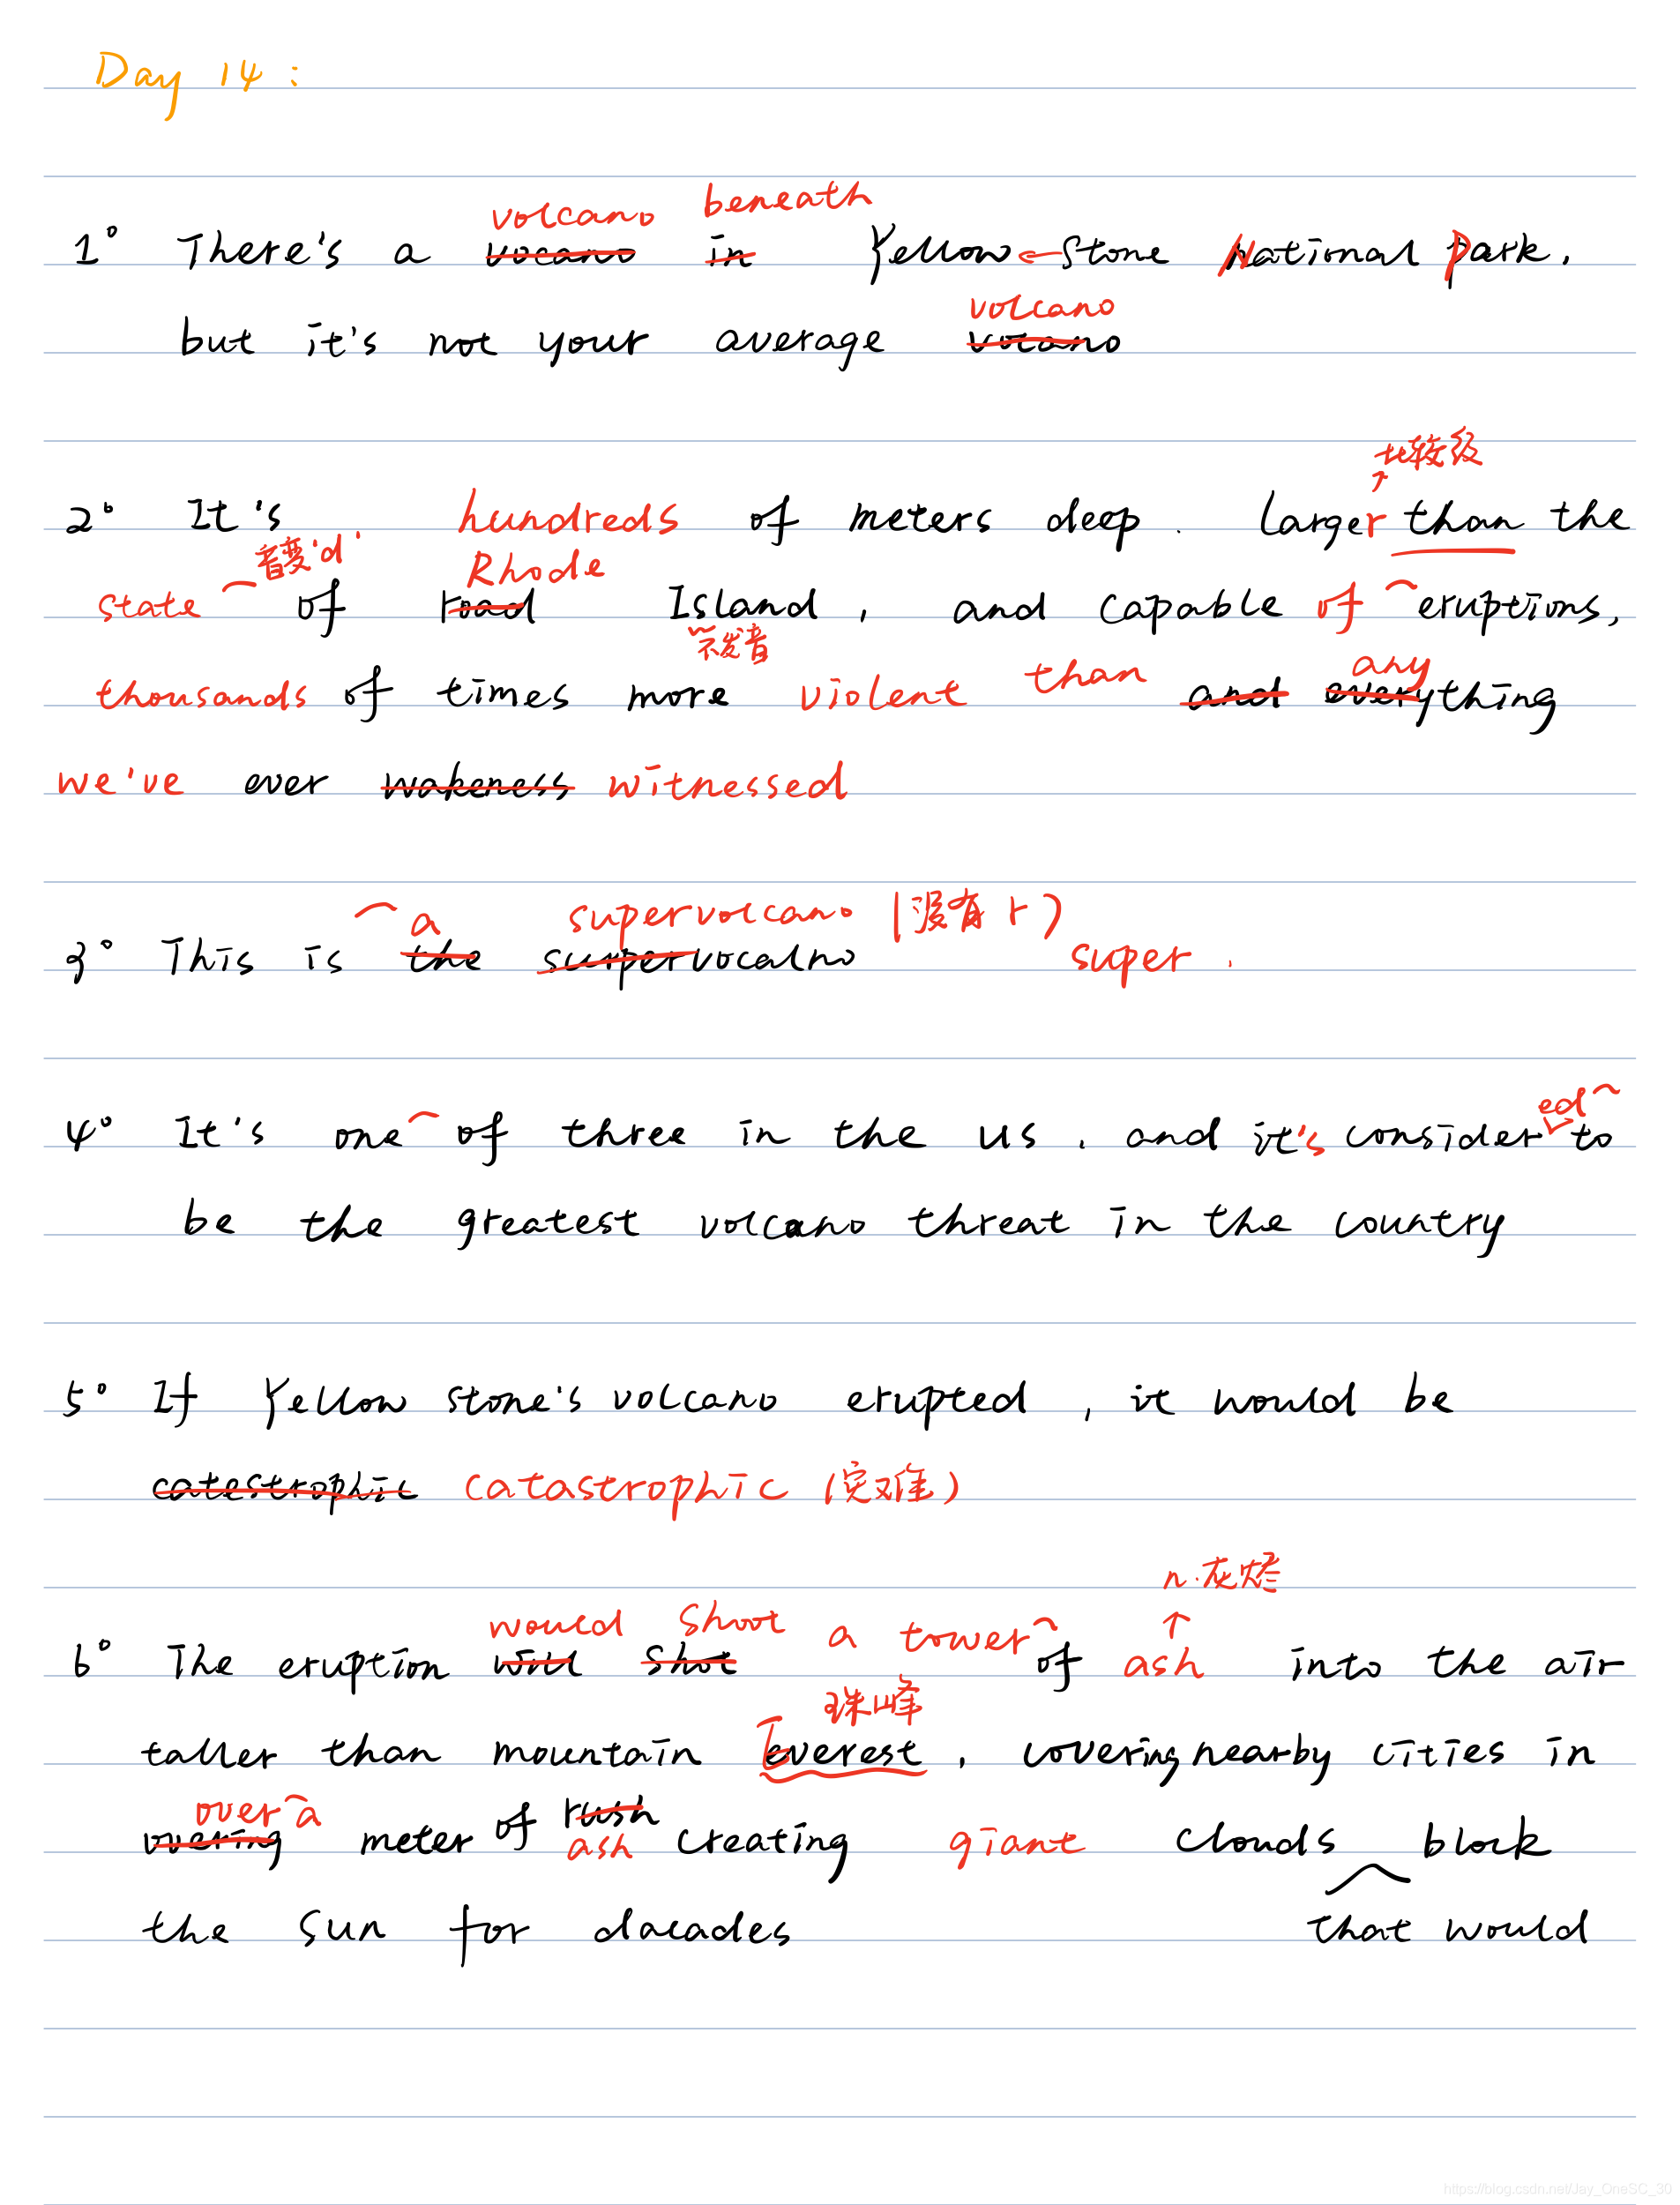 Day 14 :
volcano beneath
1° There's a vocano in Yellow ← Stone National Park,
volcano
but it's not your average votano
比较级
2° It's hundreds of meters deep. larger than the
音变'd' Rhode
state of road Island, and capable of eruptions,
不发音
than any
thousands of times more violent and everything
we've ever wakeness witnessed
a supervolcano (没有r)
3° This is the surpervocalno super.
ed
4° It's one of three in the us, and it's consider to
be the greatest volcano threat in the country
5° If Yellow stone's volcano erupted, it would be
catestrophic catastrophic (灾难)
n.灰烬
would shoot a tower
6° The eruption will shot of ash into the air
珠峰
taller than mountain Everest, covering nearby cities in
over a
overing meter of rush ash creating giant clouds block
the sun for dacades that would
https://blog.csdn.net/Jay_OneSC_30